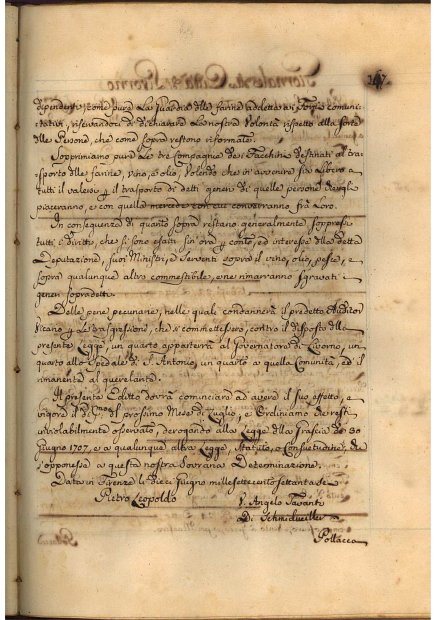 147.
dipendenti, come pure la squadra delle farine addetta ai Forni comuni-
tativi, riservandoci di dichiarare la nostra volontà rispetto alla sorte
delle Persone, che come sopra restono riformate.
Sopprimiamo pure le tre Compagnie de' Facchini destinati al tra-
sporto delle farine, vino, e olio, volendo che in avvenire sia libero a
tutti il valersi p il trasporto di detti generi di quelle persone che più
piaceranno, e con quella mercede con cui converranno frà loro.
In consequenza di quanto sopra restano generalmente soppressi
tutti i diritti, che si sono esatti sin'ora p conto, ed interesse della detta
Deputazione, suoi Ministri, e Serventi sopra il vino, olio, pesce, e
sopra qualunque altro commestibile, e ne rimarranno sgravati i
generi sopradetti.
Delle pene pecuniarie, nelle quali condannerà il predetto Auditor
Vicario p le trasgressioni, che si commettessero, contro il disposto della
presente Legge, un quarto apparterrà al Governatore di Livorno, un
quarto allo Spedale di S. Antonio, un quarto a quella Comunità, ed il
rimanente al querelante.
Il presente Editto dovrà cominciare ad avere il suo effetto, e
vigore il dì p.mo del prossimo Mese di Luglio, e Ordiniamo che resti
inviolabilmente osservato, derogando alla Legge della Grascia de' 30
Giugno 1707, e a qualunque altra Legge, Statuto, o Consuetudine, che
s'opponesse a questa nostra Sovrana Determinazione.
Data in Firenze li dieci Giugno mille settecento settanta sei
Pietro Leopoldo
V. Angelo Tavanti
Di Schmidweiller
Pollacca